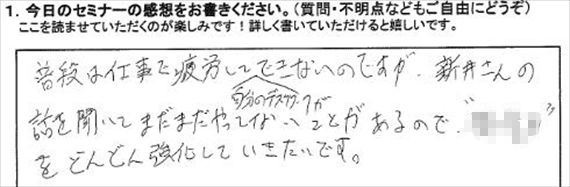 1. 今日のセミナーの感想をお書きください。(質問・不明点などもご自由にどうぞ)
ここを読ませていただくのが楽しみです!詳しく書いていただけると嬉しいです。
普段は仕事で疲労してできないのですが、新井さんの
自分のデスクワークが
話を聞いてまだまだやってないことがあるので、“
”
をどんどん強化していきたいです。